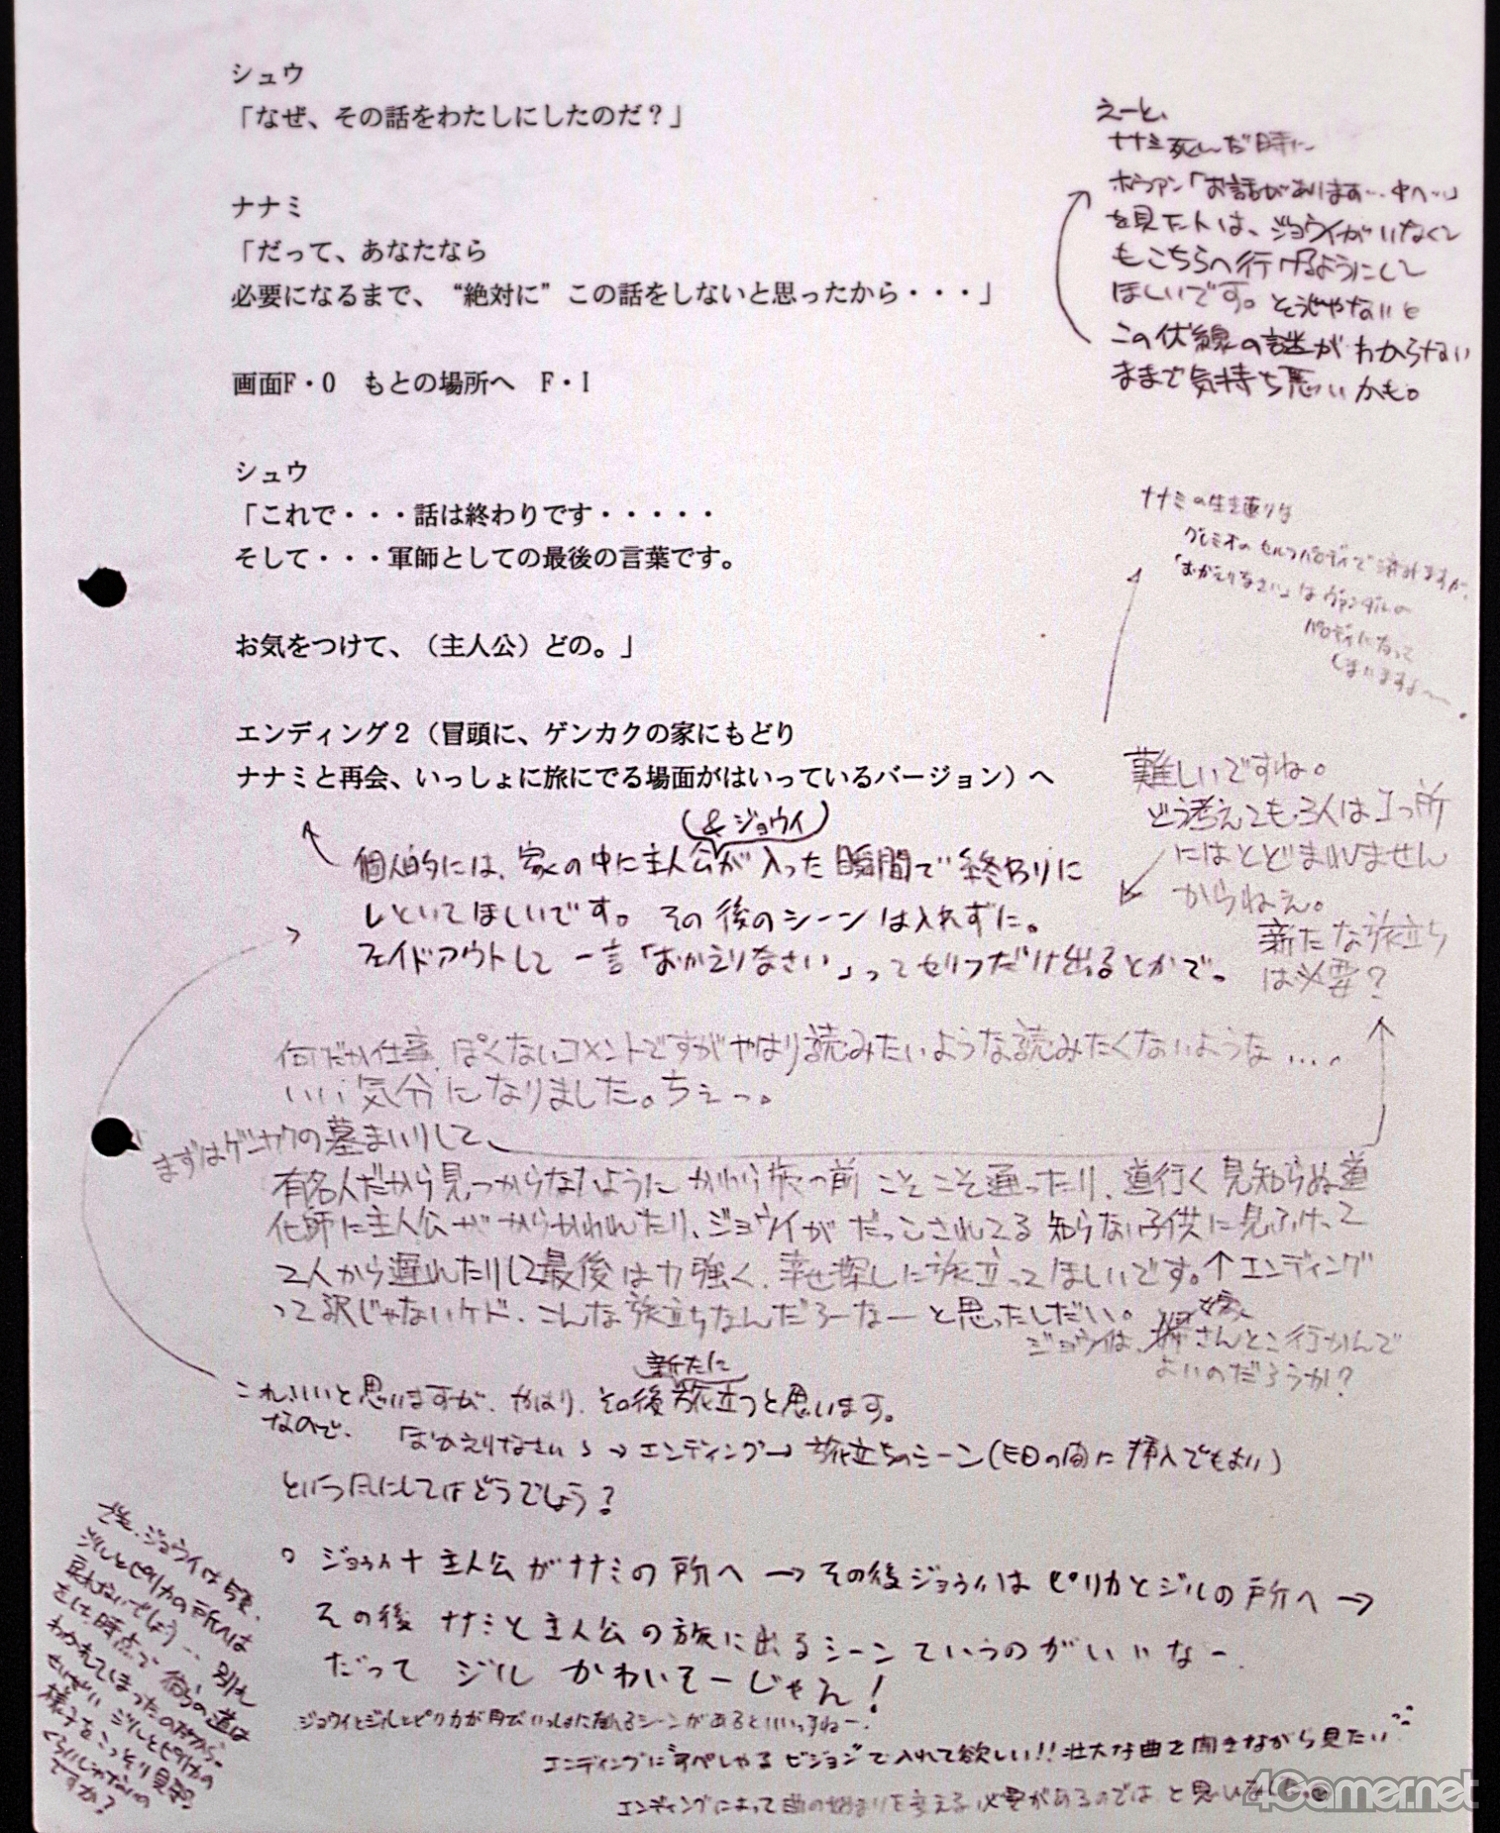 シュウ
「なぜ、その話をわたしにしたのだ？」
ナナミ
「だって、あなたなら
必要になるまで、“絶対に”この話をしないと思ったから・・・」
画面F・O　もとの場所へ　F・I
シュウ
「これで・・・話は終わりです・・・・・
そして・・・軍師としての最後の言葉です。
お気をつけて、（主人公）どの。」
エンディング２（冒頭に、ゲンカクの家にもどり
ナナミと再会、いっしょに旅にでる場面がはいっているバージョン）へ
えーと、
ナナミ死んだ時に
ホウアン「お話があります…中へ…」
を見た人は、ジョウイがいなくて
もこちらへ行けるようにして
ほしいです。そうじゃないと
この伏線の謎がわからない
ままで気持ち悪いかも。
ナナミの生き返りは
グレミオのセルフパロディで済みますが、
「おかえりなさい」はヴァンダルの
パロディになって
しまいますよ〜。
難しいですね。
どう考えても3人は1つ所
にはとどまれません
からねぇ。
新たな旅立ち
は必要？
（＆ジョウイ）
個人的には、家の中に主人公が入った瞬間で終わりに
しといてほしいです。その後のシーンは入れずに。
フェイドアウトして一言「おかえりなさい」ってセリフだけ出るとかで。
何だか仕事ぽくないコメントですがやはり読みたいような読みたくないような….
いい気分になりました。ちぇっ。
まずはゲンカクの墓まいりして、
有名人だから見つからないように の前こそこそ通ったり、道行く見知らぬ道
化師に主人公がからかわれたり、ジョウイがだっこされてる知らない子供に見
2人から遅れたりして最後は力強く、幸せ探しに旅立ってほしいです。↑エンディング
って訳じゃないケド、こんな旅立ちなんだろーなーと思ったしだい。
嫁
ジョウイは、さんとこ行かんで
よいのだろうか？
新たに
これいいと思いますが、やはり、その後旅立つと思います。
なので、「おかえりなさい」→エンディング→旅立ちのシーン（ の間に挿入でもよい）
という風にしてはどうでしょう？
○ ジョウイ＋主人公がナナミの所へ→その後ジョウイはピリカとジルの所へ→
その後ナナミと主人公の旅に出るシーンていうのがいいなー.
だって ジル かわいそーじゃん！
ジョウイとジルとピリカが再びいっしょになれるシーンがあるといいっすねー！
エンディングにすぺしゃるビジョンで入れて欲しい!!壮大な曲を聞きながら見たい
エンディングによって曲の始まりを変える必要があるのでは と思いました。
ジョウイは
ジルとピリカの所へは
戻れないでしょう…、別れ
をした時点で彼らの道は
わかれてしまったのだから。
せいぜい ジルとピリカの
様子をこっそり見る
くらいじゃないの
ですか？
4Gamer.net